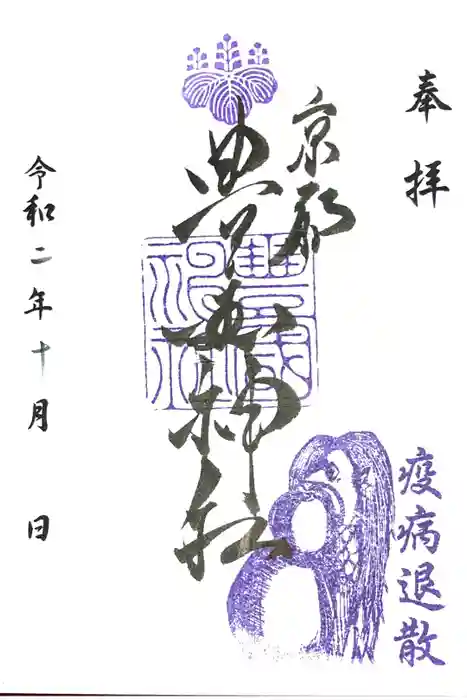 奉拝
疫病退散
京都
豊国神社
豐國
神社
令和二年十月 日